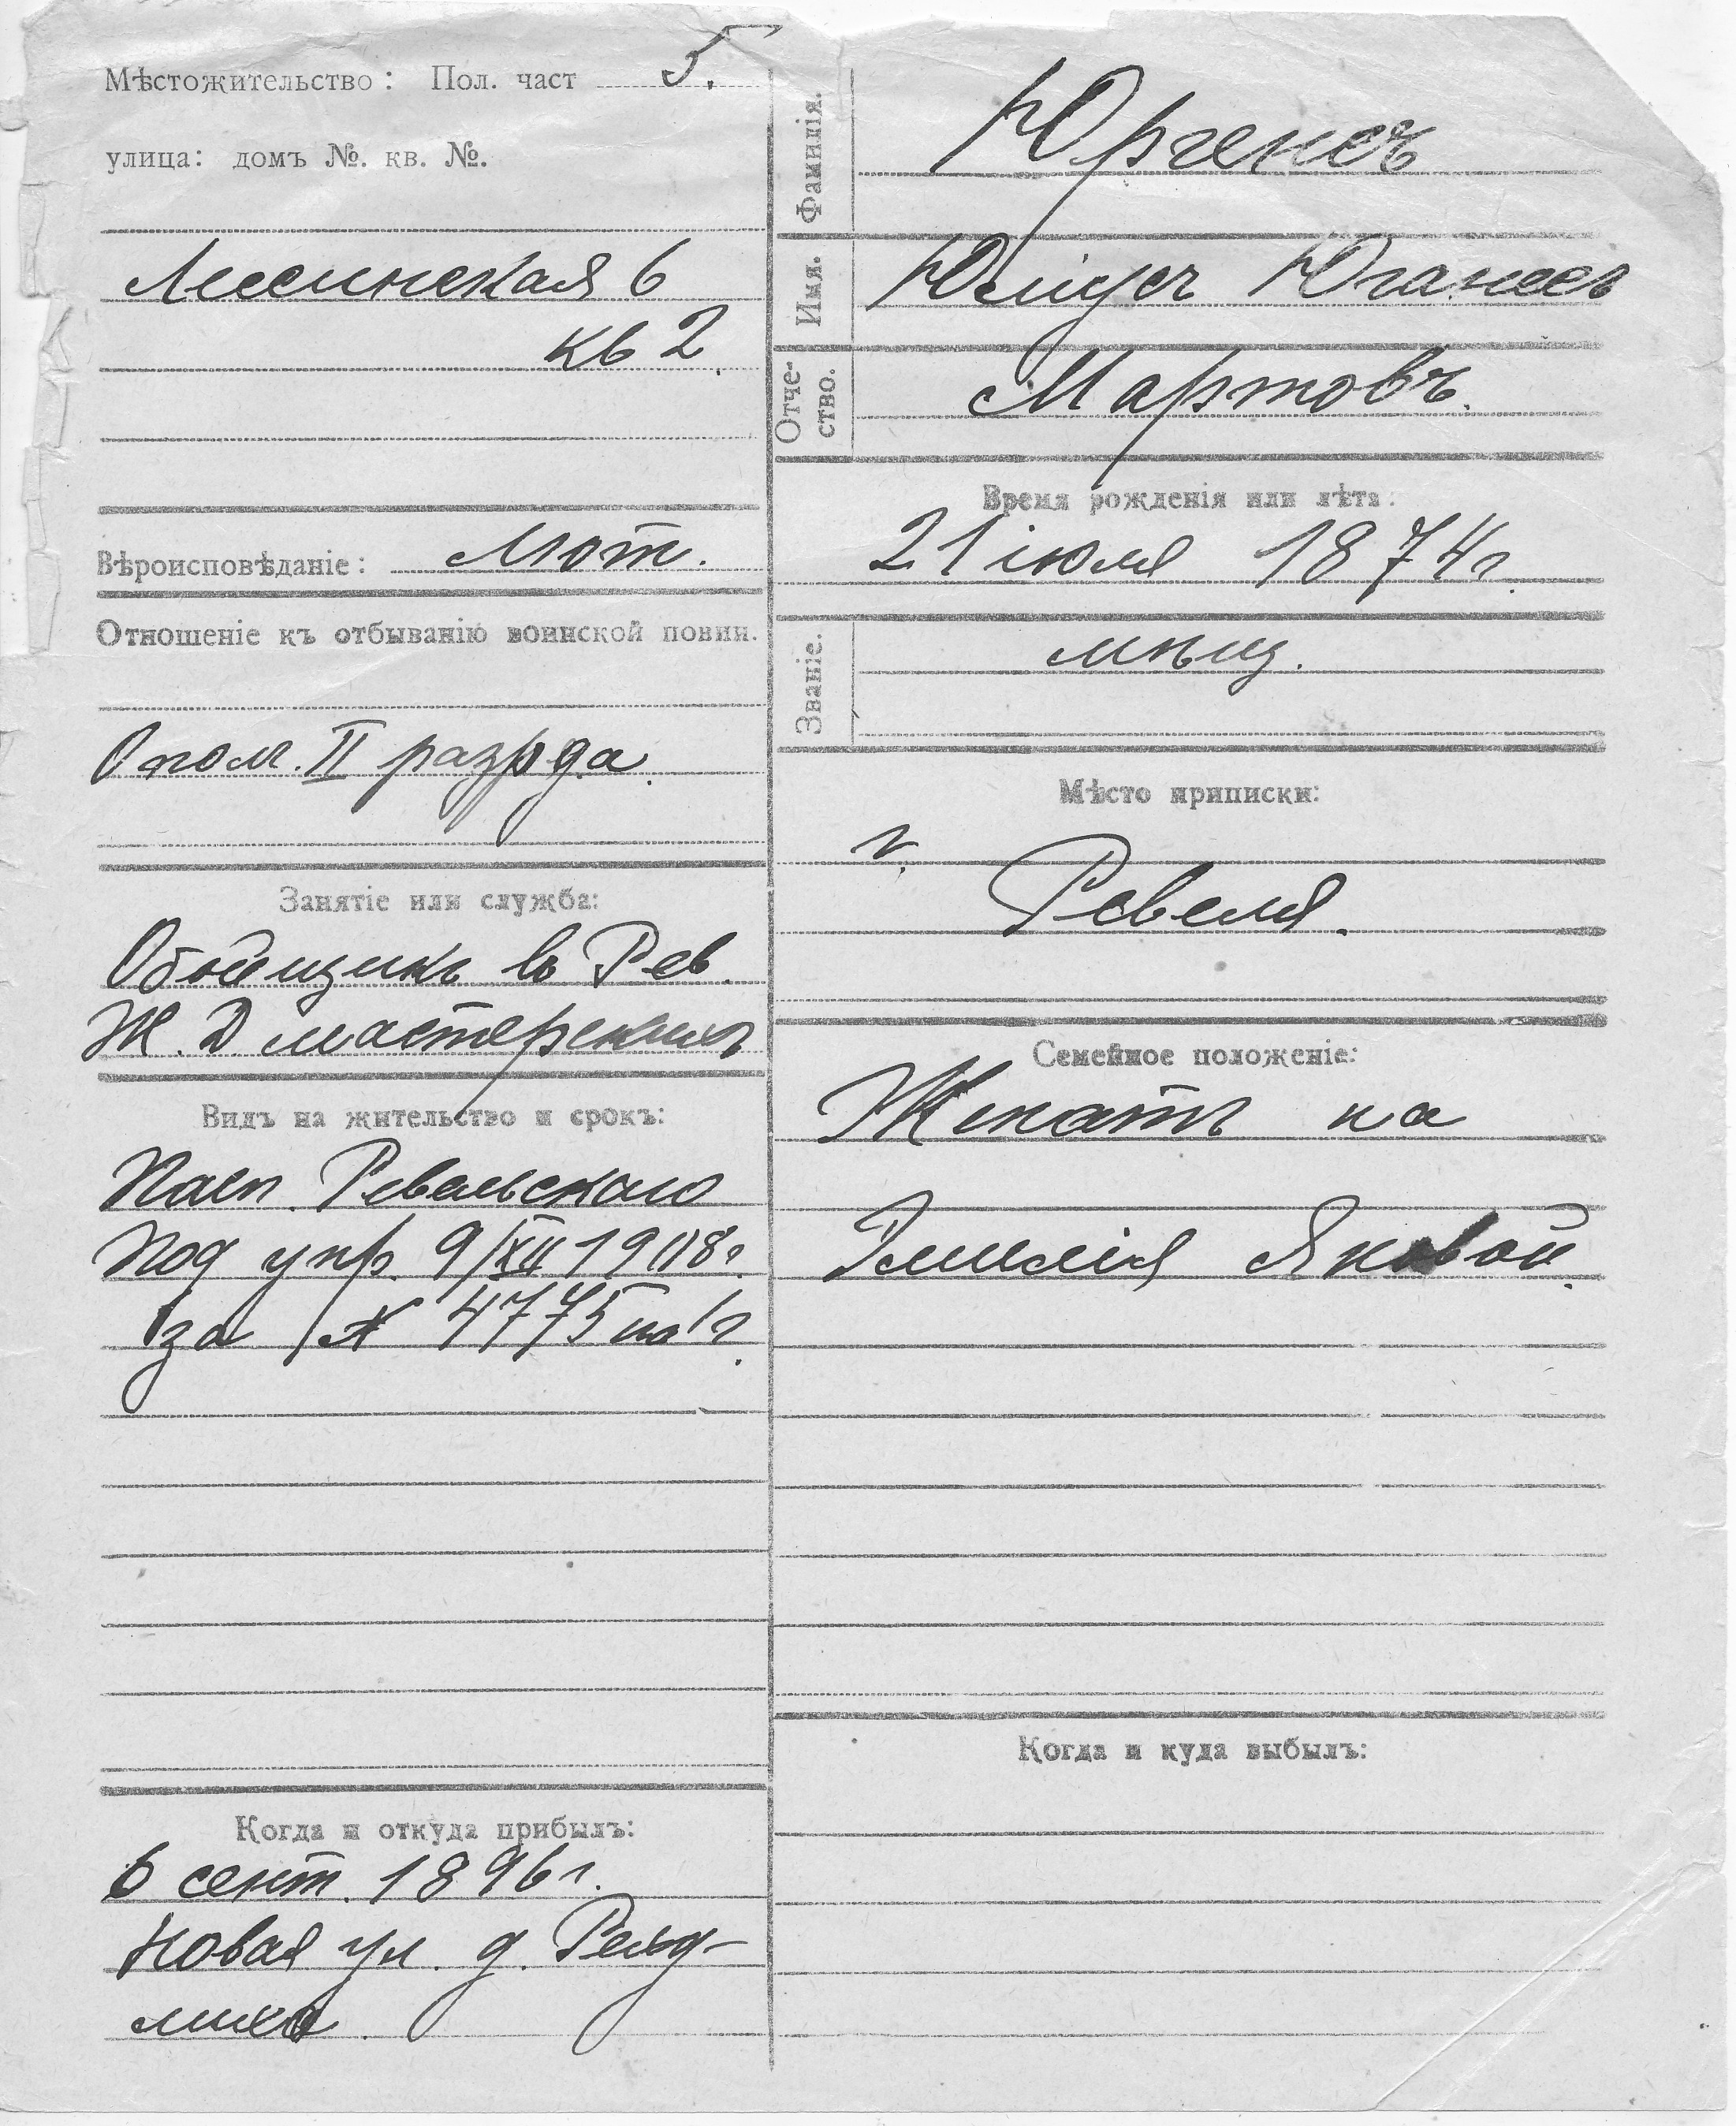 Мѣстожительство: Пол. част 5.
улица: домъ №. кв. №.
Лессинская 6
кв 2
Вѣроисповѣданіе: Лют.
Отношеніе къ отбыванію воинской повин.
Опол. II разрда.
Занятіе или служба:
Обойщикъ въ Рев.
Ж. Д мастерскихъ
Видъ на жительство и срокъ:
Пасп. Ревельскаго
Под упр. 9/XII 1908г.
за № 4775 на 1 г.
Когда и откуда прибылъ:
6 сент. 1896 г.
Новая ул. д.
Фамилія. Юргенсъ
Имя. Юліусъ Юганесъ
Отче-ство. Мартовъ.
Время рожденія или лѣта:
21 іюля 1874 г.
Званіе. мѣщ.
Мѣсто приписки:
г.
Ревеля.
Семейное положеніе:
Женатъ на
Эмилія Яковой.
Когда и куда выбылъ: